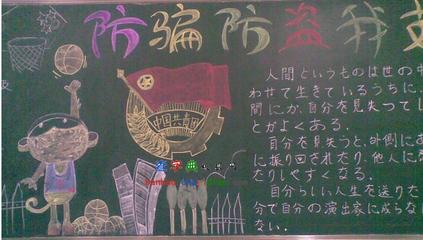 防骗防盗我
中国共青团
人間というものは世の中
わせて生きているうちに、
間にか、自分を見失ってし
とがよくある。
自分を見失うと、外側にあ
に振り回されたり、他人に
たりしやすくなる。
自分らしい人生を送りた
分で自分の演出家に成らな
ない。